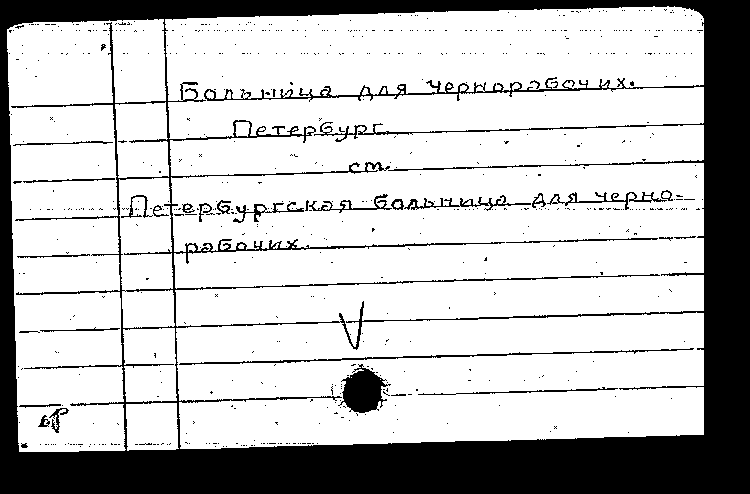 Больница для чернорабочих.
Петербург
ст.
Петербургская больница для черно-
рабочих